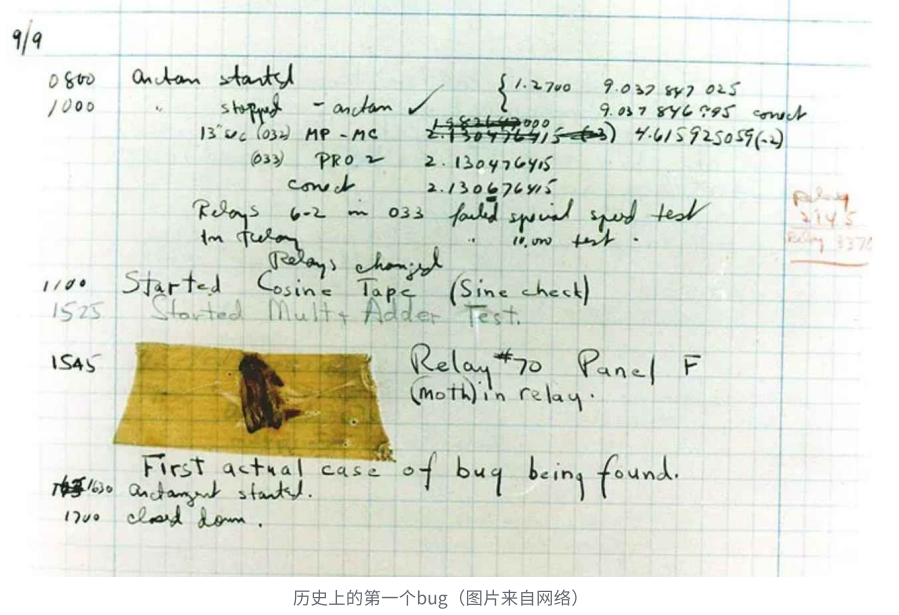 9/9
0800 Antan started
1000 " stopped - antan ✓ { 1.2700 9.037 847 025
9.037 846 795 conect
13"uc (032) MP - MC 2.130476415 (-3) 4.615925059(-2)
(033) PRO 2 2.130476415
conect 2.130676415
Relays 6-2 in 033 failed special speed test
In Relay " 10,000 test .
Relays changed
Relay
2145
Relay 3370
1100 Started Cosine Tape (Sine check)
1525 Started Mult+ Adder Test.
1545 Relay #70 Panel F
(moth) in relay.
First actual case of bug being found.
1630 Antangent started.
1700 closed down.
历史上的第一个bug（图片来自网络）